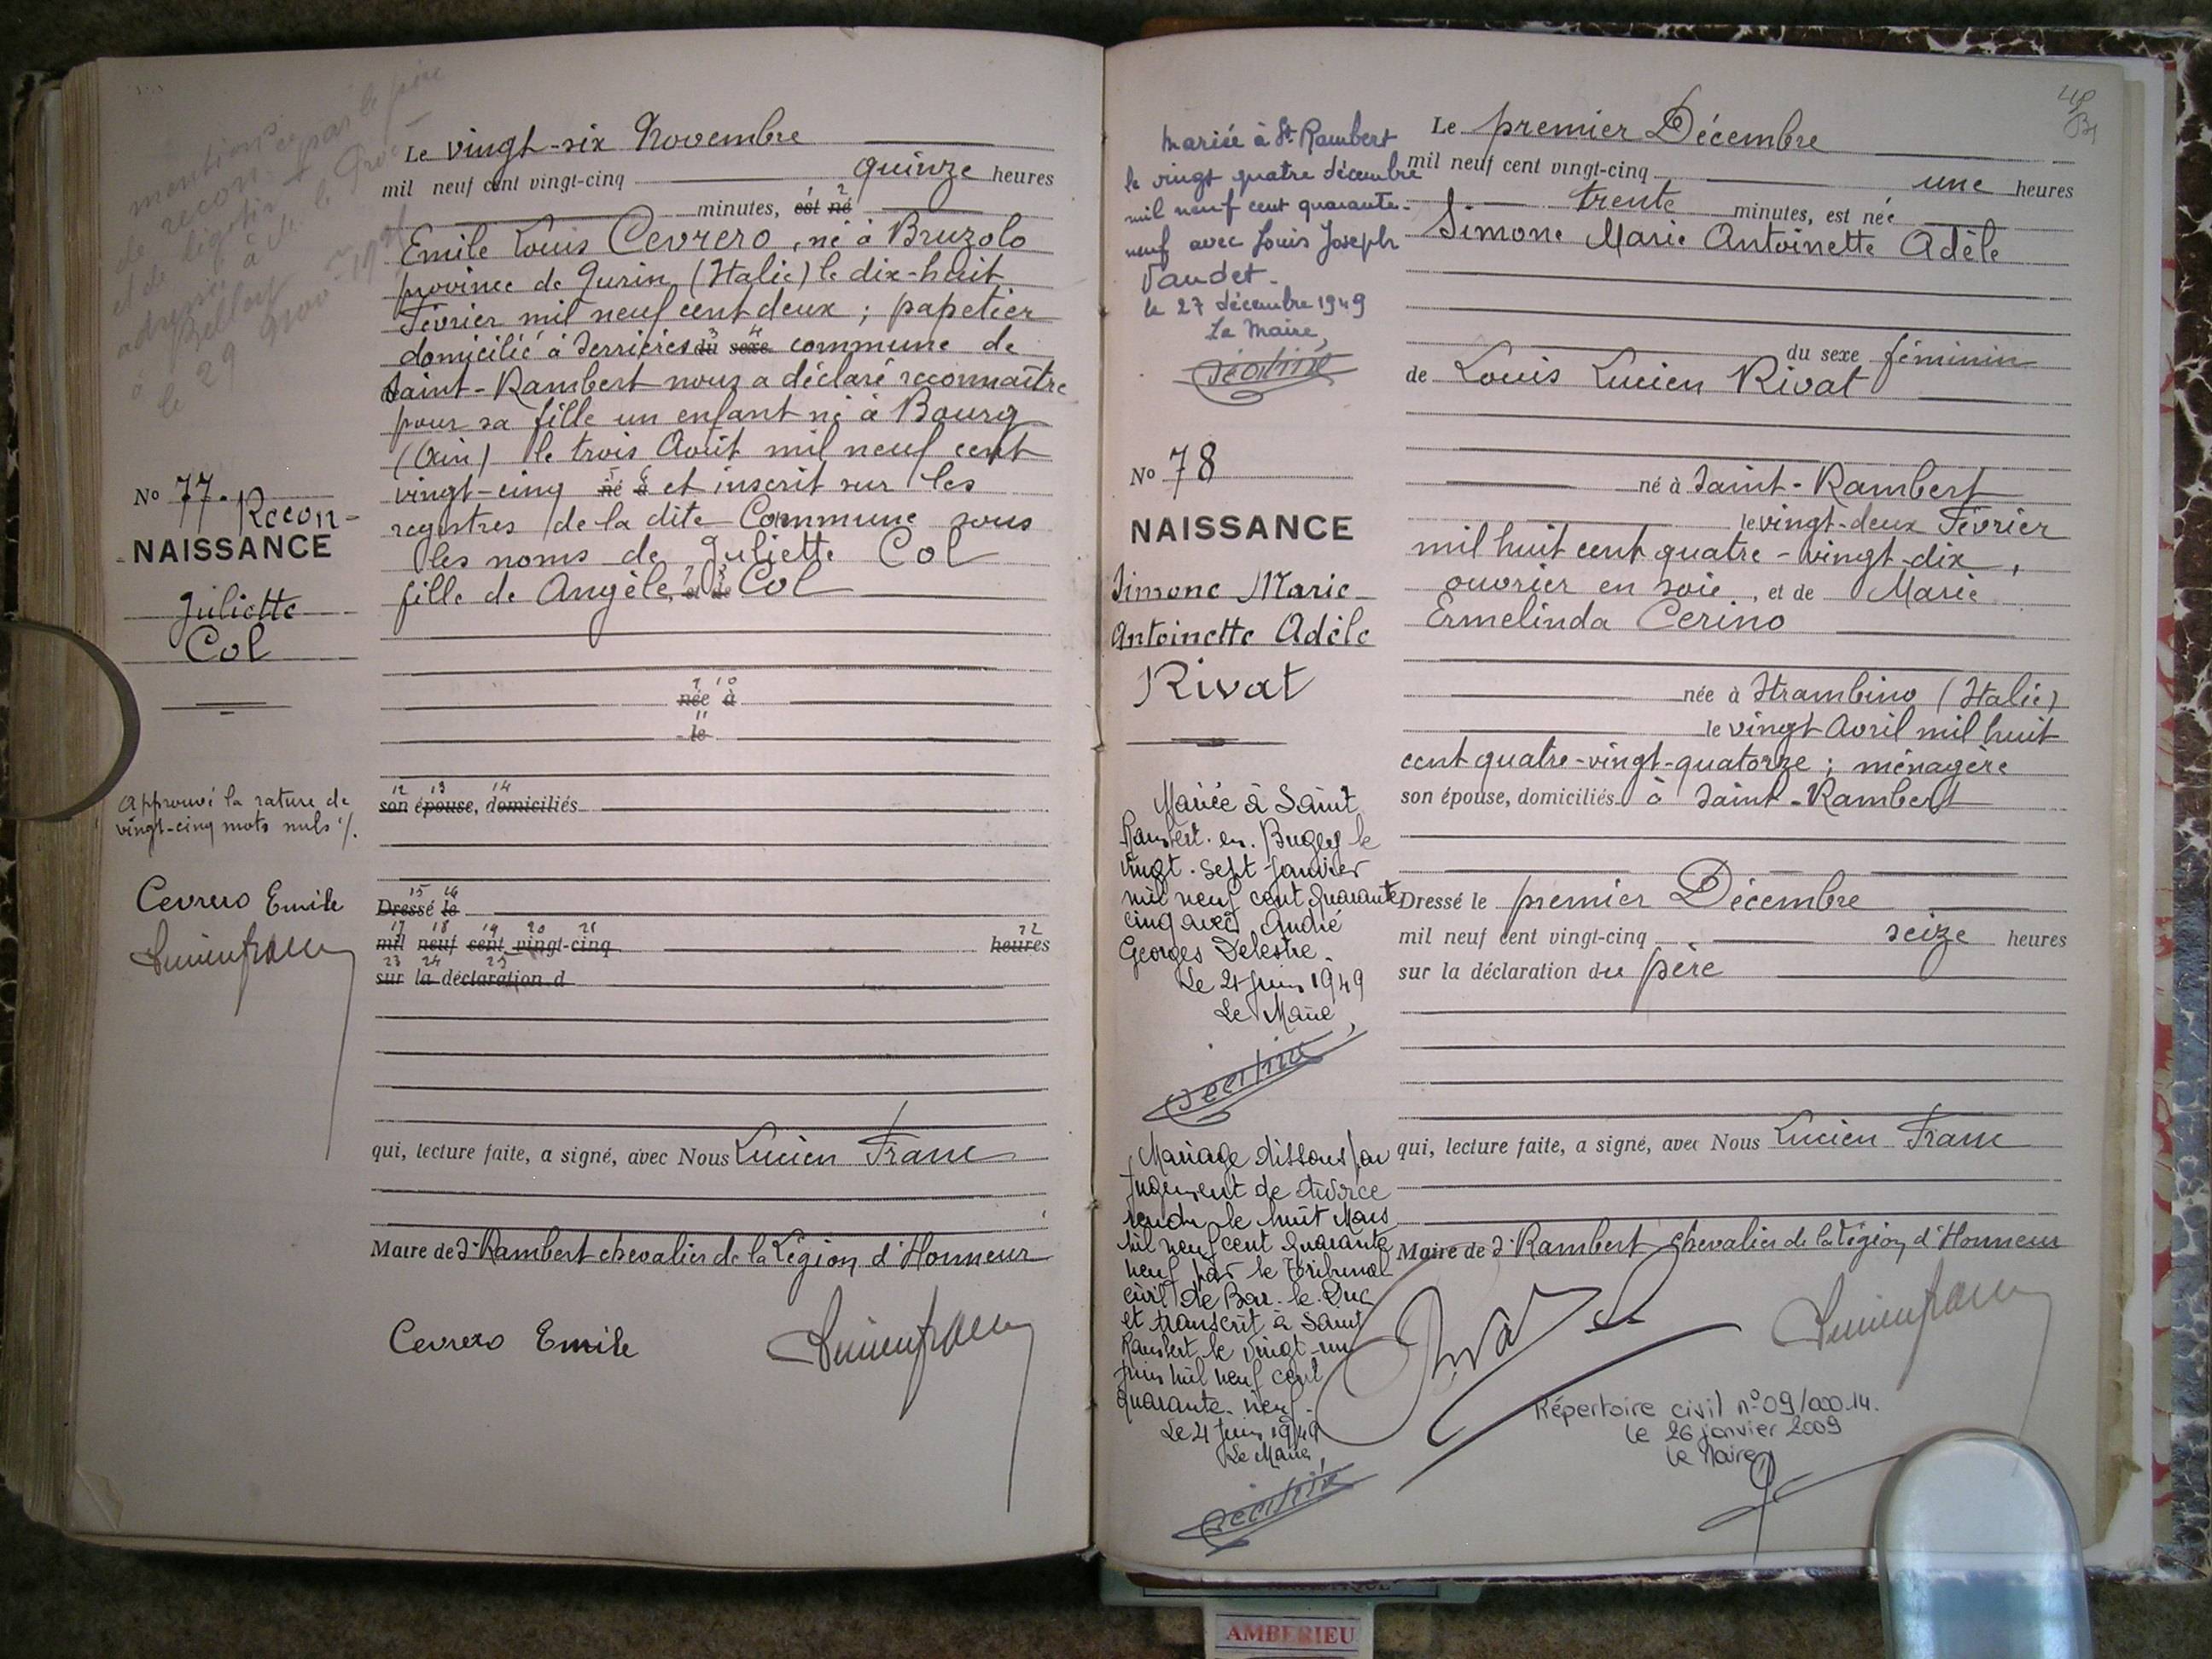 mention
de recon. ce par le père
et de légitim
adressée à M. le Proc
à Belley
le 29 Nov
Le vingt-six Novembre
mil neuf cent vingt-cinq quinze heures
minutes, est né
Emile Louis Cevrero, né à Bruzolo
province de Turin (Italie) le dix-huit
Février mil neuf cent deux ; papetier
domicilié à Serrières du sexe commune de
Saint-Rambert nous a déclaré reconnaître
pour sa fille un enfant né à Bourg
(Ain) le trois Août mil neuf cent
vingt-cinq né à et inscrit sur les
registres de la dite Commune sous
les noms de Juliette Col
fille de Angèle, et de Col
No 77. Recon-
NAISSANCE
Juliette
Col
née à
le
son épouse, domiciliés
Approuvé la rature de
vingt-cinq mots nuls ./.
Cevrero Emile
Lucien Franc
Dressé le
mil neuf cent vingt-cinq heures
sur la déclaration d
qui, lecture faite, a signé, avec Nous Lucien Franc
Maire de St Rambert chevalier de la Légion d'Honneur
Cevrero Emile Lucien Franc
Mariée à St Rambert
le vingt quatre décembre
mil neuf cent quarante-
neuf avec Louis Joseph
Vaudet.
le 27 décembre 1949
Le Maire,
No 78
NAISSANCE
Simone Marie
Antoinette Adèle
Rivat
Mariée à Saint
Rambert-en-Bugey le
vingt-sept Janvier
mil neuf cent quarante
cinq avec André
Georges Delestre.
Le 21 Juin 1949
Le Maire,
Mariage dissous par
jugement de divorce
rendu le huit Mars
mil neuf cent quarante
neuf par le tribunal
civil de Bar-le-Duc
et transcrit à Saint
Rambert le vingt-un
juin mil neuf cent
quarante-neuf.
Le 21 Juin 1949
Le Maire,
Le premier Décembre
mil neuf cent vingt-cinq une heures
trente minutes, est née
Simone Marie Antoinette Adèle
du sexe féminin
de Louis Lucien Rivat
né à Saint-Rambert
le vingt-deux Février
mil huit cent quatre-vingt-dix,
ouvrier en soie, et de Marie
Ermelinda Cerino
née à Strambino (Italie)
le vingt Avril mil huit
cent quatre-vingt-quatorze ; ménagère
son épouse, domiciliés à Saint-Rambert
Dressé le premier Décembre
mil neuf cent vingt-cinq seize heures
sur la déclaration du père
qui, lecture faite, a signé, avec Nous Lucien Franc
Maire de St Rambert chevalier de la Légion d'Honneur
Rivat Lucien Franc
Répertoire civil n° 09/000.14.
le 26 janvier 2009
le Maire
AMBERIEU